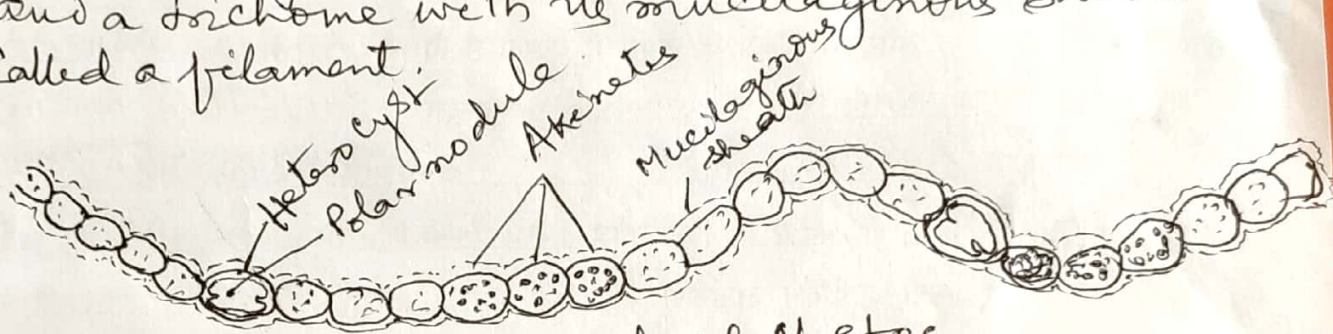 and a trichome with its mucilaginous
called a filament.
Hetero cyst
Polar nodule
Akinetes
Mucilaginous
sheath